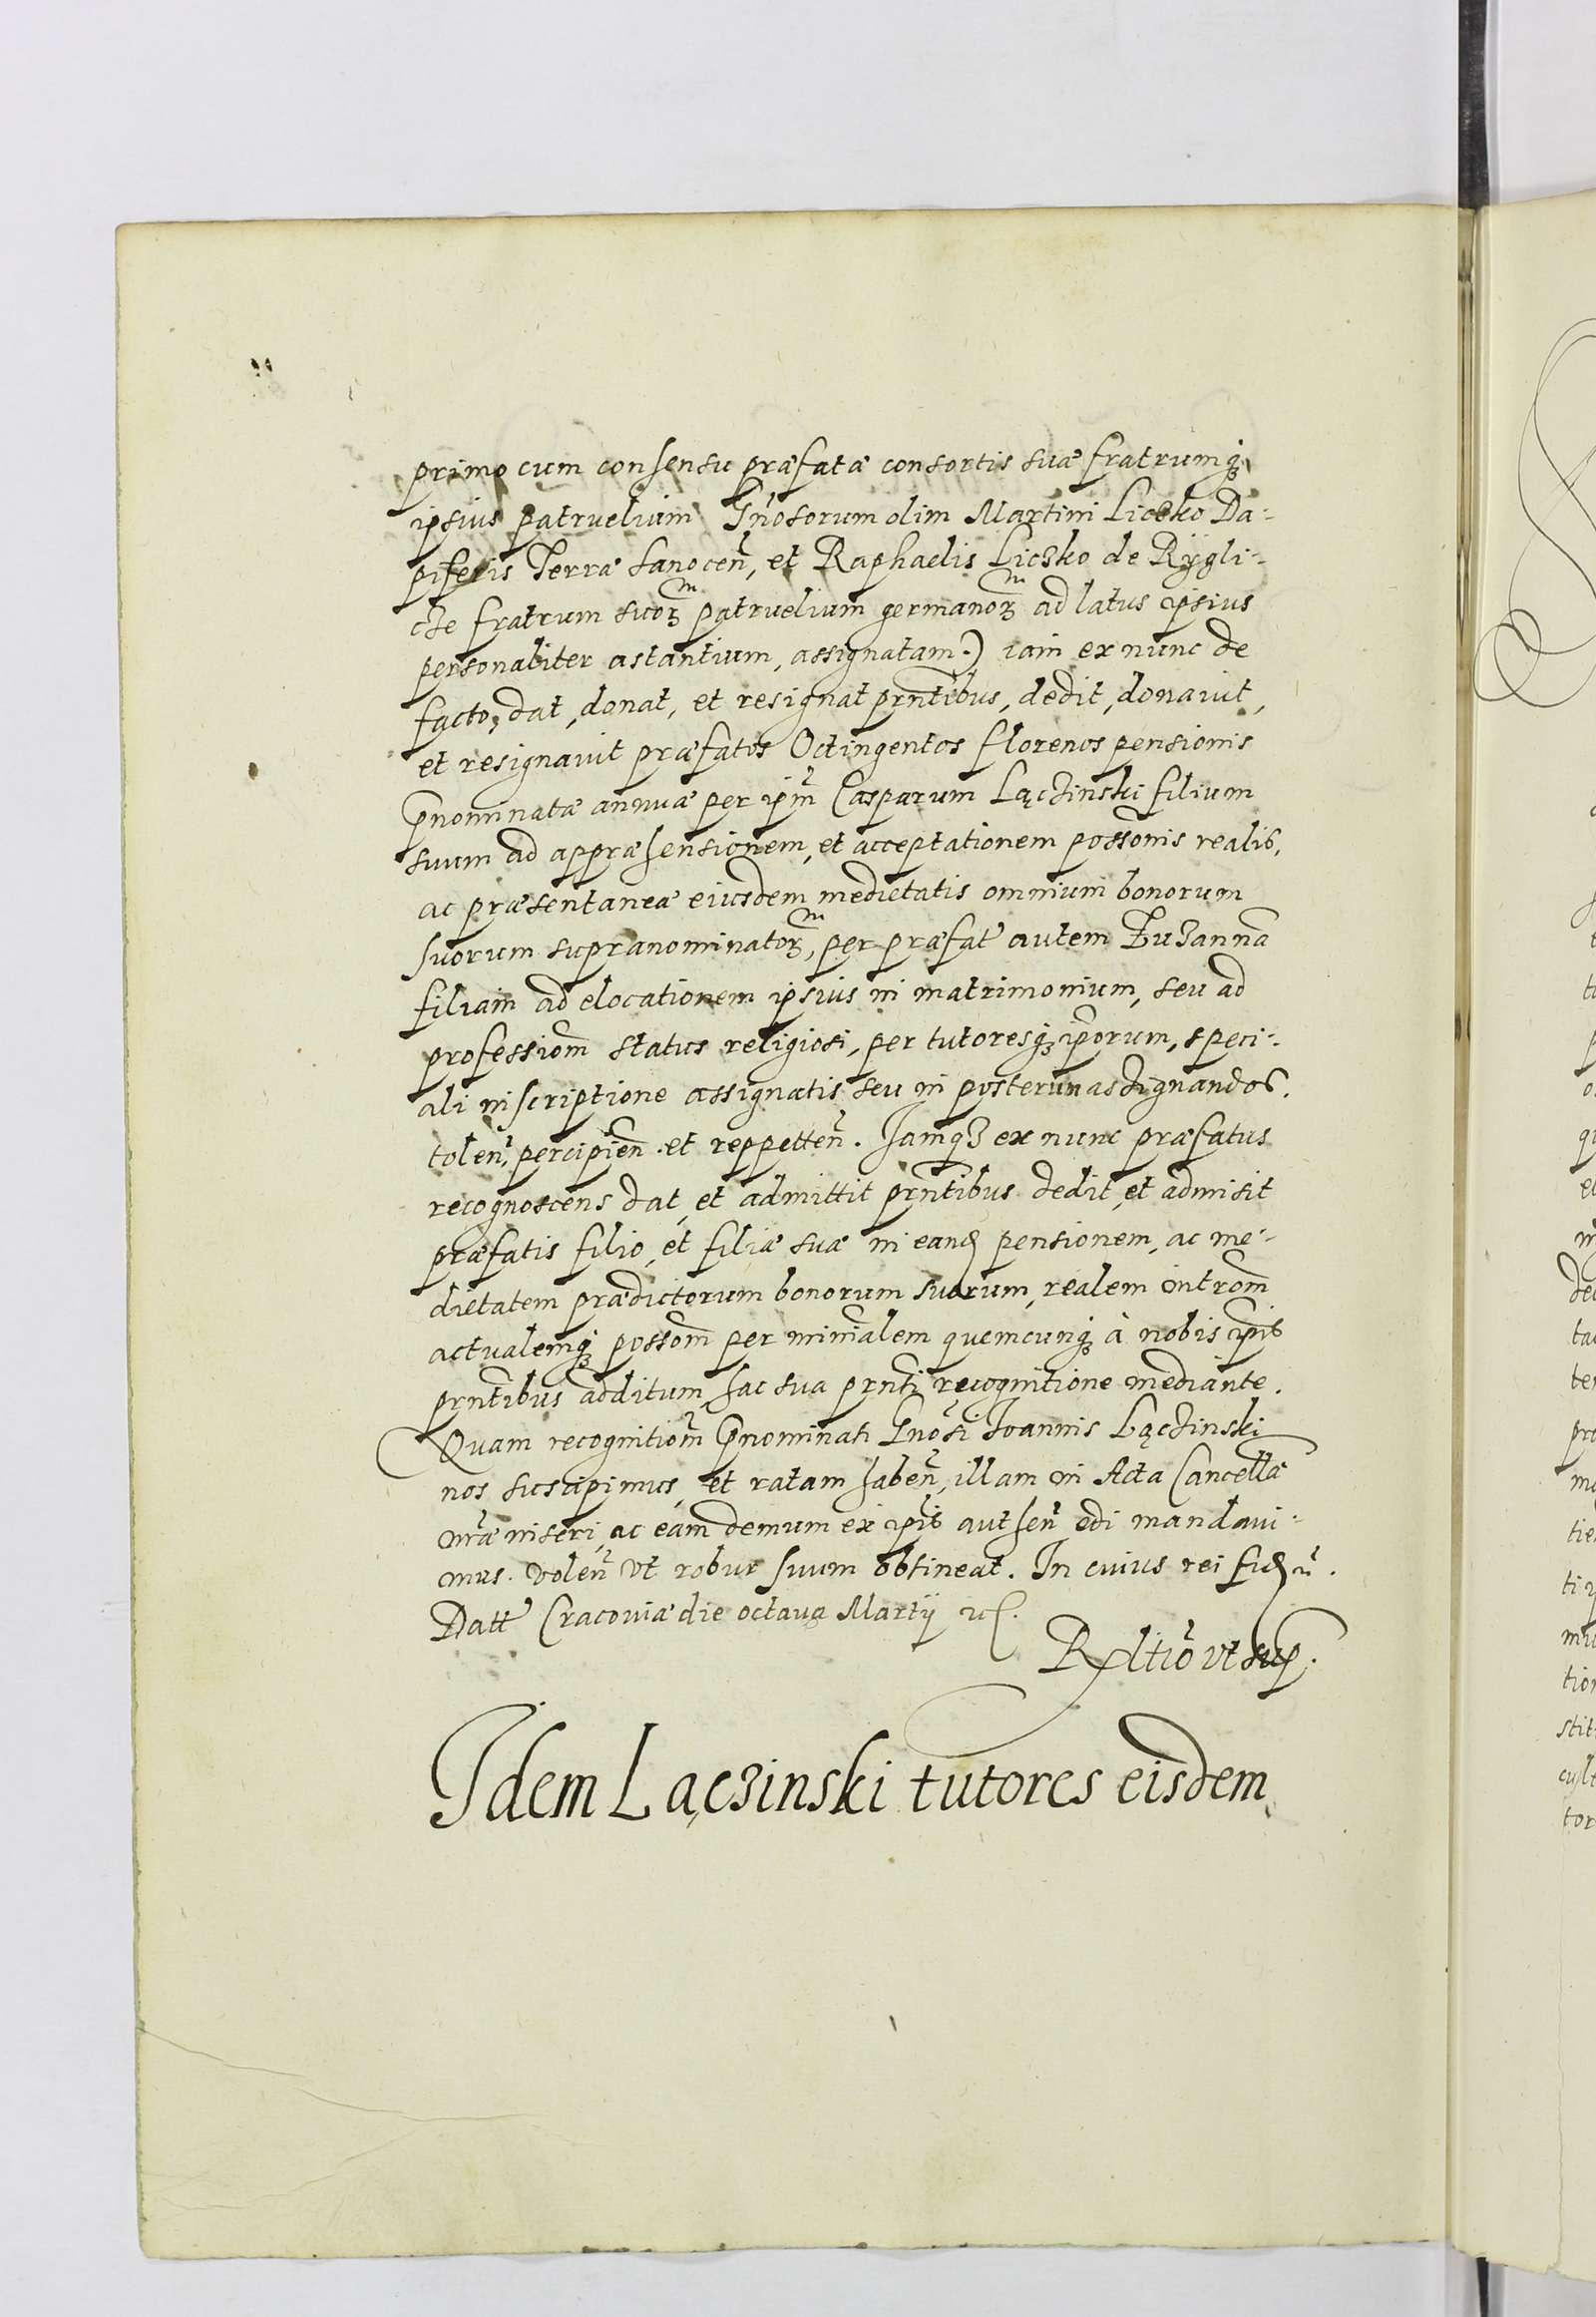 primo cum consensu præfatæ consortis suæ fratrumq3
ipsius patruelium Gn̄osorum olim Martini Liczko Da:
piferis Terræ Sanocen̄, et Raphaelis Liczko de Rÿgli:
cze fratrum suor3m patruelium germanor3m ad latus ipsius
personaliter astantium, assignatam.) iam ex nunc de
facto, dat, donat, et resignat prn̄tibus, dedit, donauit,
et resignauit præfatos Octingentos florenos pensionis
p̄nominatæ annuæ per ipm̄ Casparum Lączinski filium
suum ad appræhensionem, et acceptationem possonis realis,
ac præsentaneæ eiusdem medietatis omnium bonorum
suorum supranominator3m, per præfat autem Zuzanna
filiam ad elocationem ipsius in matrimonium, seu ad
professiom̄ status religiosi, per tutoresq3 ip̄orum, speci:
ali inscriptione assignatis seu in posterum assignandos.
tolen̄, percipien̄. et reppetten̄. Jamq3 ex nunc præfatus
recognoscens dat, et admittit prn̄tibus dedit, et admisit
præfatis filio, et filiæ suæ in eand pensionem, ac me:
dietatem prædictorum bonorum suorum, realem introm̄
actualemq3 possom̄ per minīalem quemcunq3 à nobis ip̄is
prn̄tibus additum, hac sua prn̄ti recognitione mediante.
Quam recognitiom̄ p̄nominati Gn̄osi Joannis Lączinski
nos suscipimus, et ratam haben̄, illam in Acta Cancellæ
nr̄æ inseri, ac eam demum ex ip̄is authen̄ edi mandaui:
mus. volen̄ vt robur suum obtineat. In cuius rei fid r̄.
Datt Cracouiæ die octaua Martij
Rltiō vt sup.
Idem Lączinski tutores eisdem